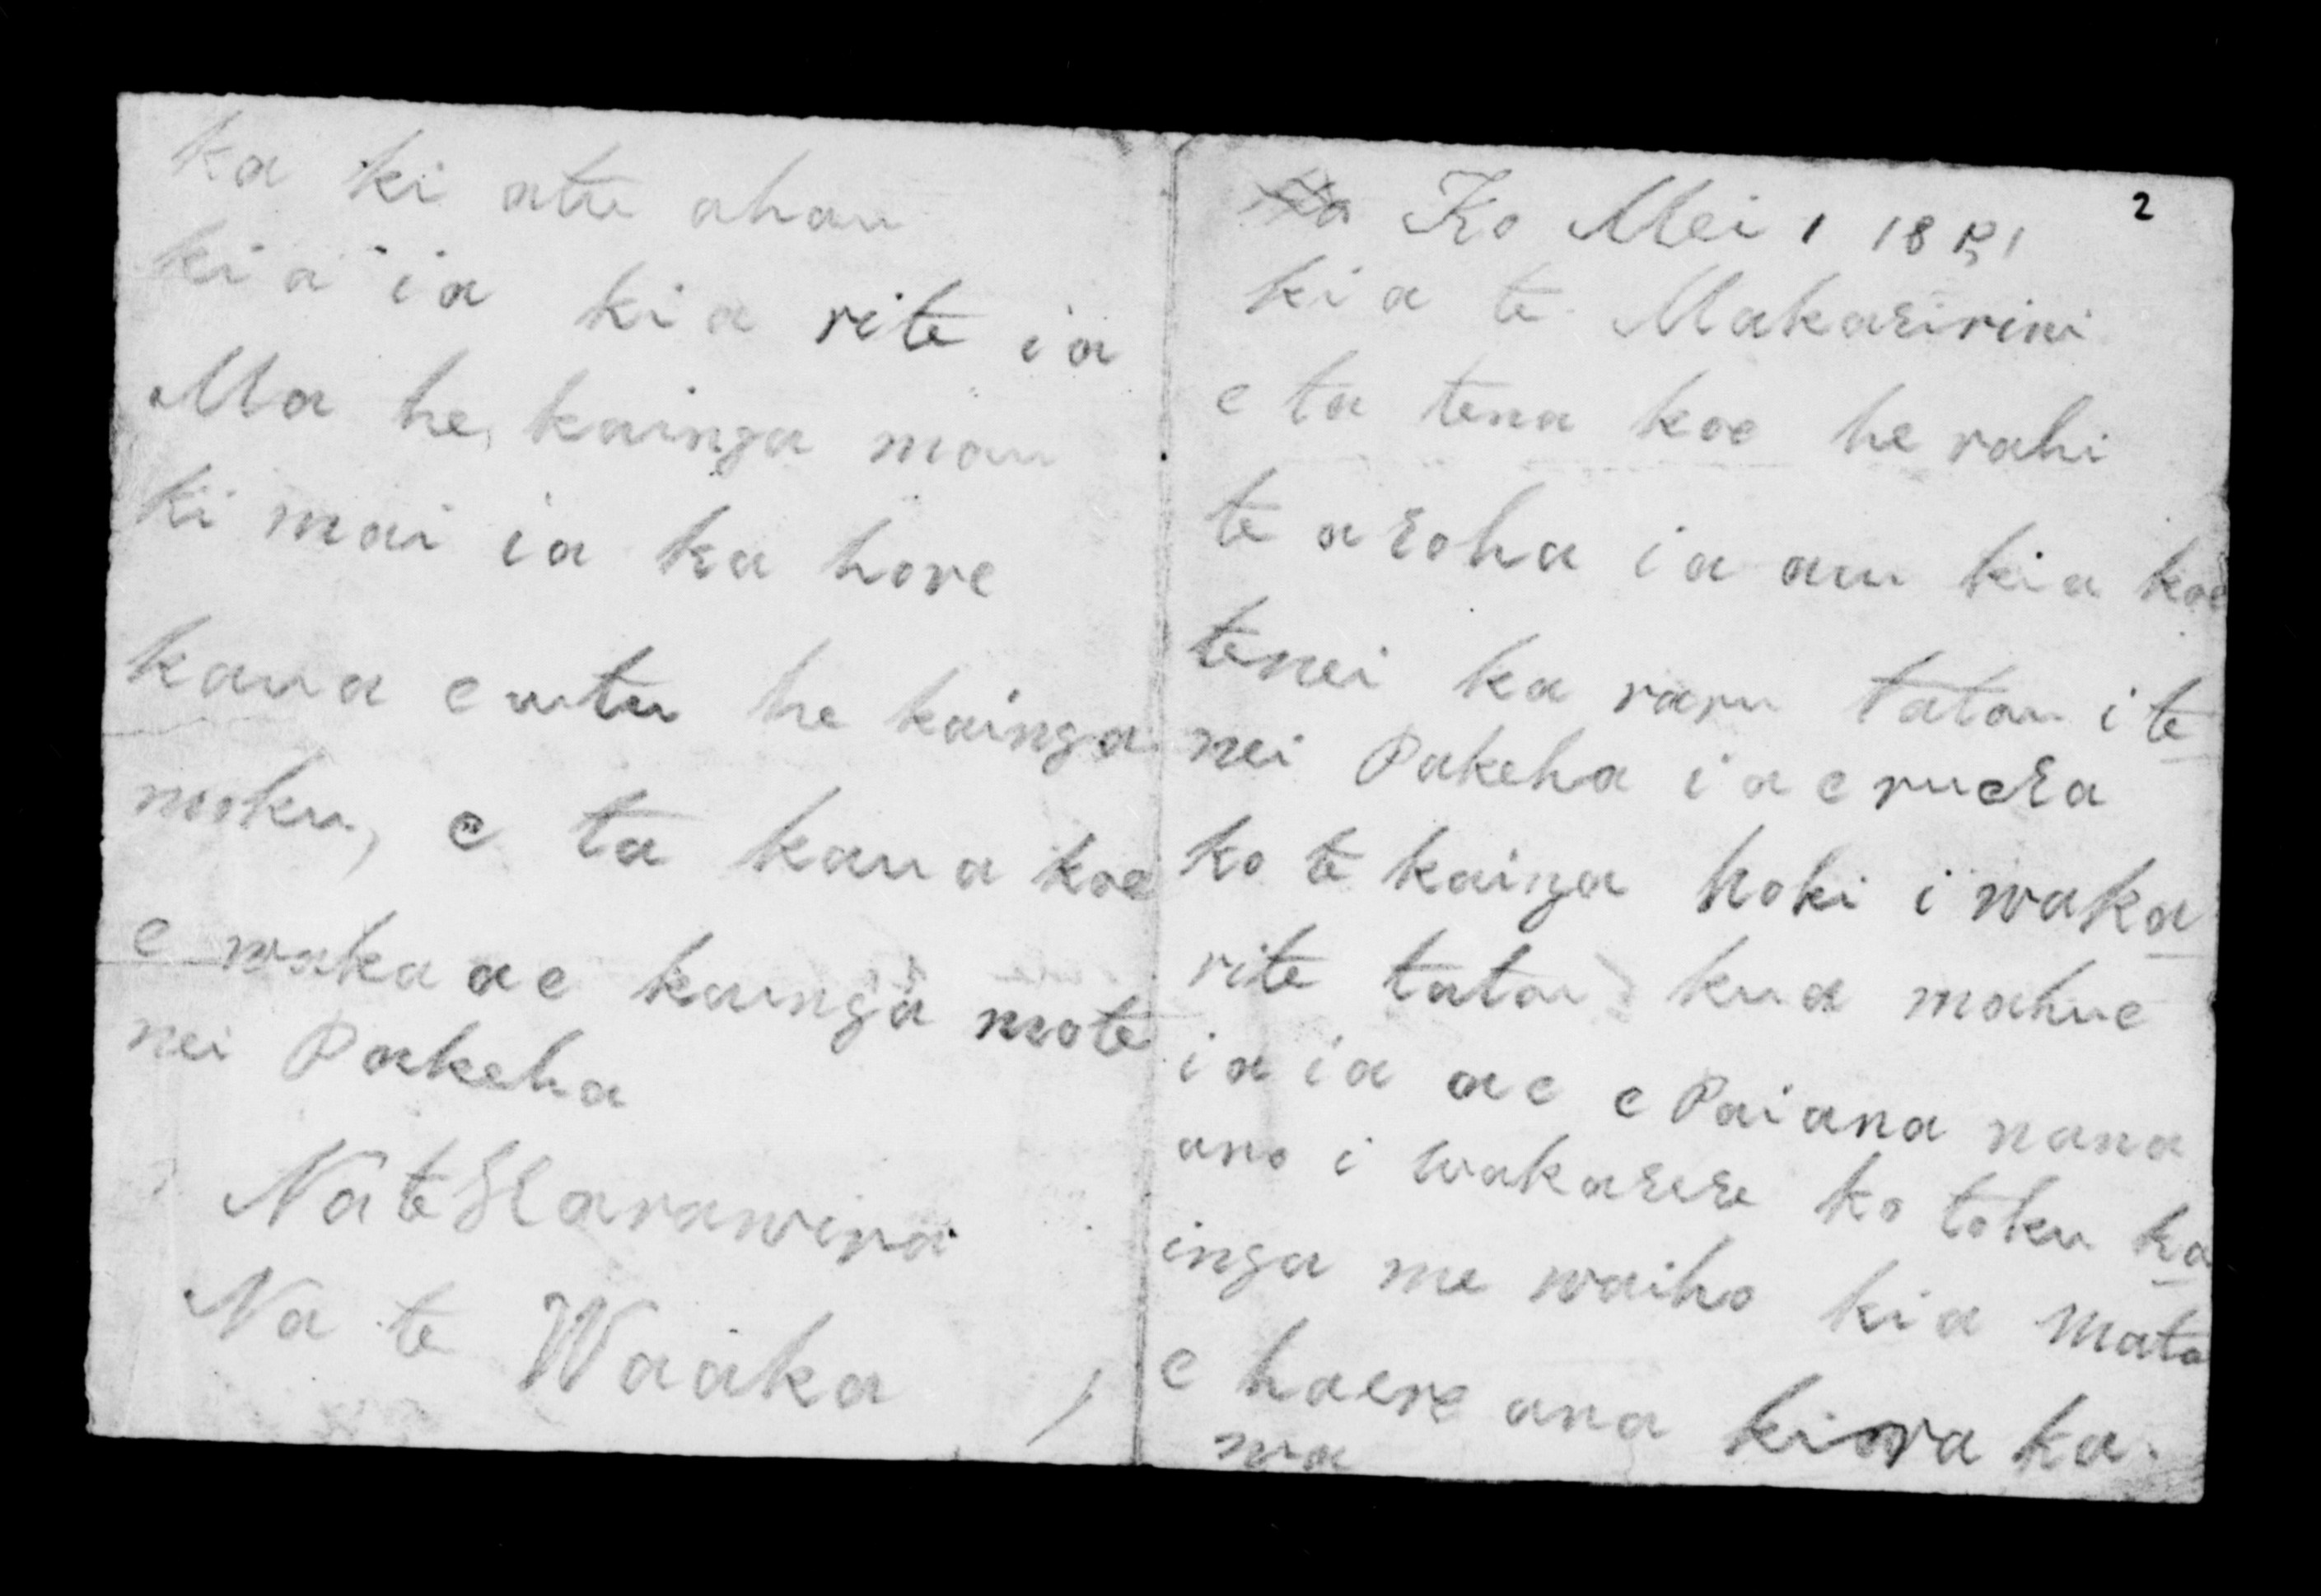 2
Ko Mei 1 1851
kia te Makaririni
e ta tena koe he rahi
te aroha ia au kia koe
tenei ka raru tatou i te
nei Pakeha ia eruera
ko te kainga hoki i waka
rite tatou kua mahue
ia ia ae e Pai ana nana
ano i wakarere ko toku ka
inga me waiho kia mata
e haere ana ki waka
wa
ka ki atu ahau
kia ia kia rite ia
Ma he kainga mou
ki mai ia ka hore
kaua e utu he kainga
moku, e ta kaua koe
e wakaae kainga mote
nei Pakeha
Na te Harawira
Na te Waaka